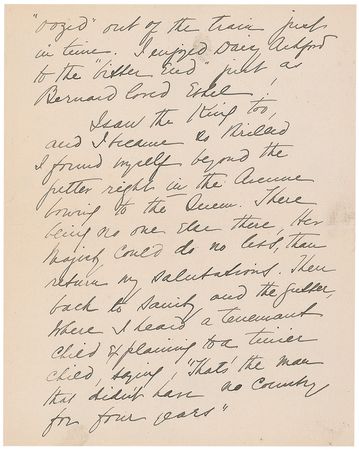 "oozed" out of the train just
in time. I enjoyed Daisy Ashford
to the "bitter End" just as
Bernard loved Ethel!
I saw the King too,
and I became so thrilled
I found myself beyond the
gutter right in the Avenue
bowing to the Queen. There
being no one else there, Her
Majesty could do no less, than
return my salutations. Then
back to sanity and the gutter,
where I heard a tenement
child explaining to a tinier
child, saying, "That's the man
that didn't have no country
for four years"